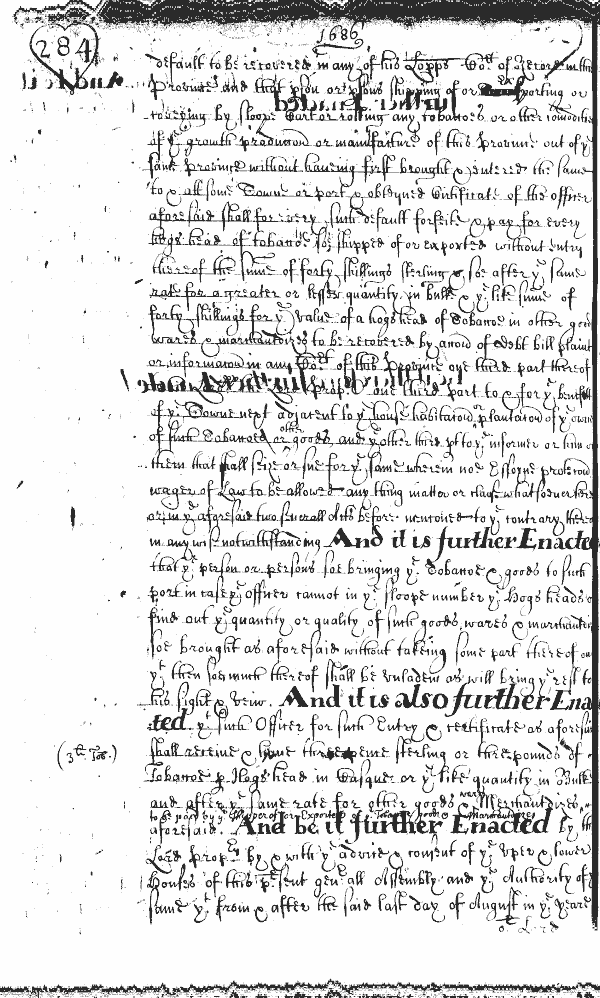 284
1686
default to be recovered in any of his Lopps Cot. of Record within
Province and that pson or psons shipping of or exporting or
conveying by sloope Cart or rolling any tobaccoes or other comodities
of ye growth production or manufacture of this Province out of ye
same Province without haveing first brought & entered the same
to & att some Towne or port & obteyned Certificate of the officer
aforesaid shall for every such default forfeite & pay for every
hogs head of tobaccoe soe shipped of or exported without entry
thereof the sume of forty shillings sterling & soe after ye same
rate for a greater or lesser quantity in bulk & ye like sume of
forty shillings for ye value of a hogshead of Tobaccoe in other good
wares & marchandizes to be recovered by accōn of debt bill plaint
or informacōn in any Court of this Province one third part thereof
prop. one third part to & for ye benefitt
of ye Towne next adjacent to ye house habitacōn plantacōn of ye owner
of such Tobaccoes or other goods, and ye other third pt to ye informer or him or
them that shall seize or sue for ye same wherein noe Essoyne proteccōn
wager of Law to be allowed any thing matter or clause whatsoever here
or in ye aforesaid two severall Acts before mencōned to ye contrary thereof
in any wise notwithstanding And it is further Enacted
that ye person or persons soe bringing ye Tobaccoe & goods to such
port in case ye officer cannot in ye sloope number ye Hogsheads or
find out ye quantity or quality of such goods wares & marchandizes
soe brought as aforesaid without takeing some part thereof out
ye then soe much thereof shall be unladen as will bring ye rest to
his sight & veiw. And it is also further Ena
ted ye such Officer for such Entry & certificate as aforesaid
(3d Tob.) shall receive & have three pence sterling or three pounds of
Tobaccoe p. Hogshead in Casque or ye like quantity in Bulke
and after ye same rate for other goods wares & Merchandizes
to be paid by ye Shipper of or Exporter of ye Tobaccoe goods & Marchandizes
aforesaid. And be it further Enacted by the
Lord Propry by & with ye advice & consent of ye upper & lower
Houses of this psent genall Assembly and ye Authority of ye
same ye from & after the said last day of August in ye yeare
of Lord